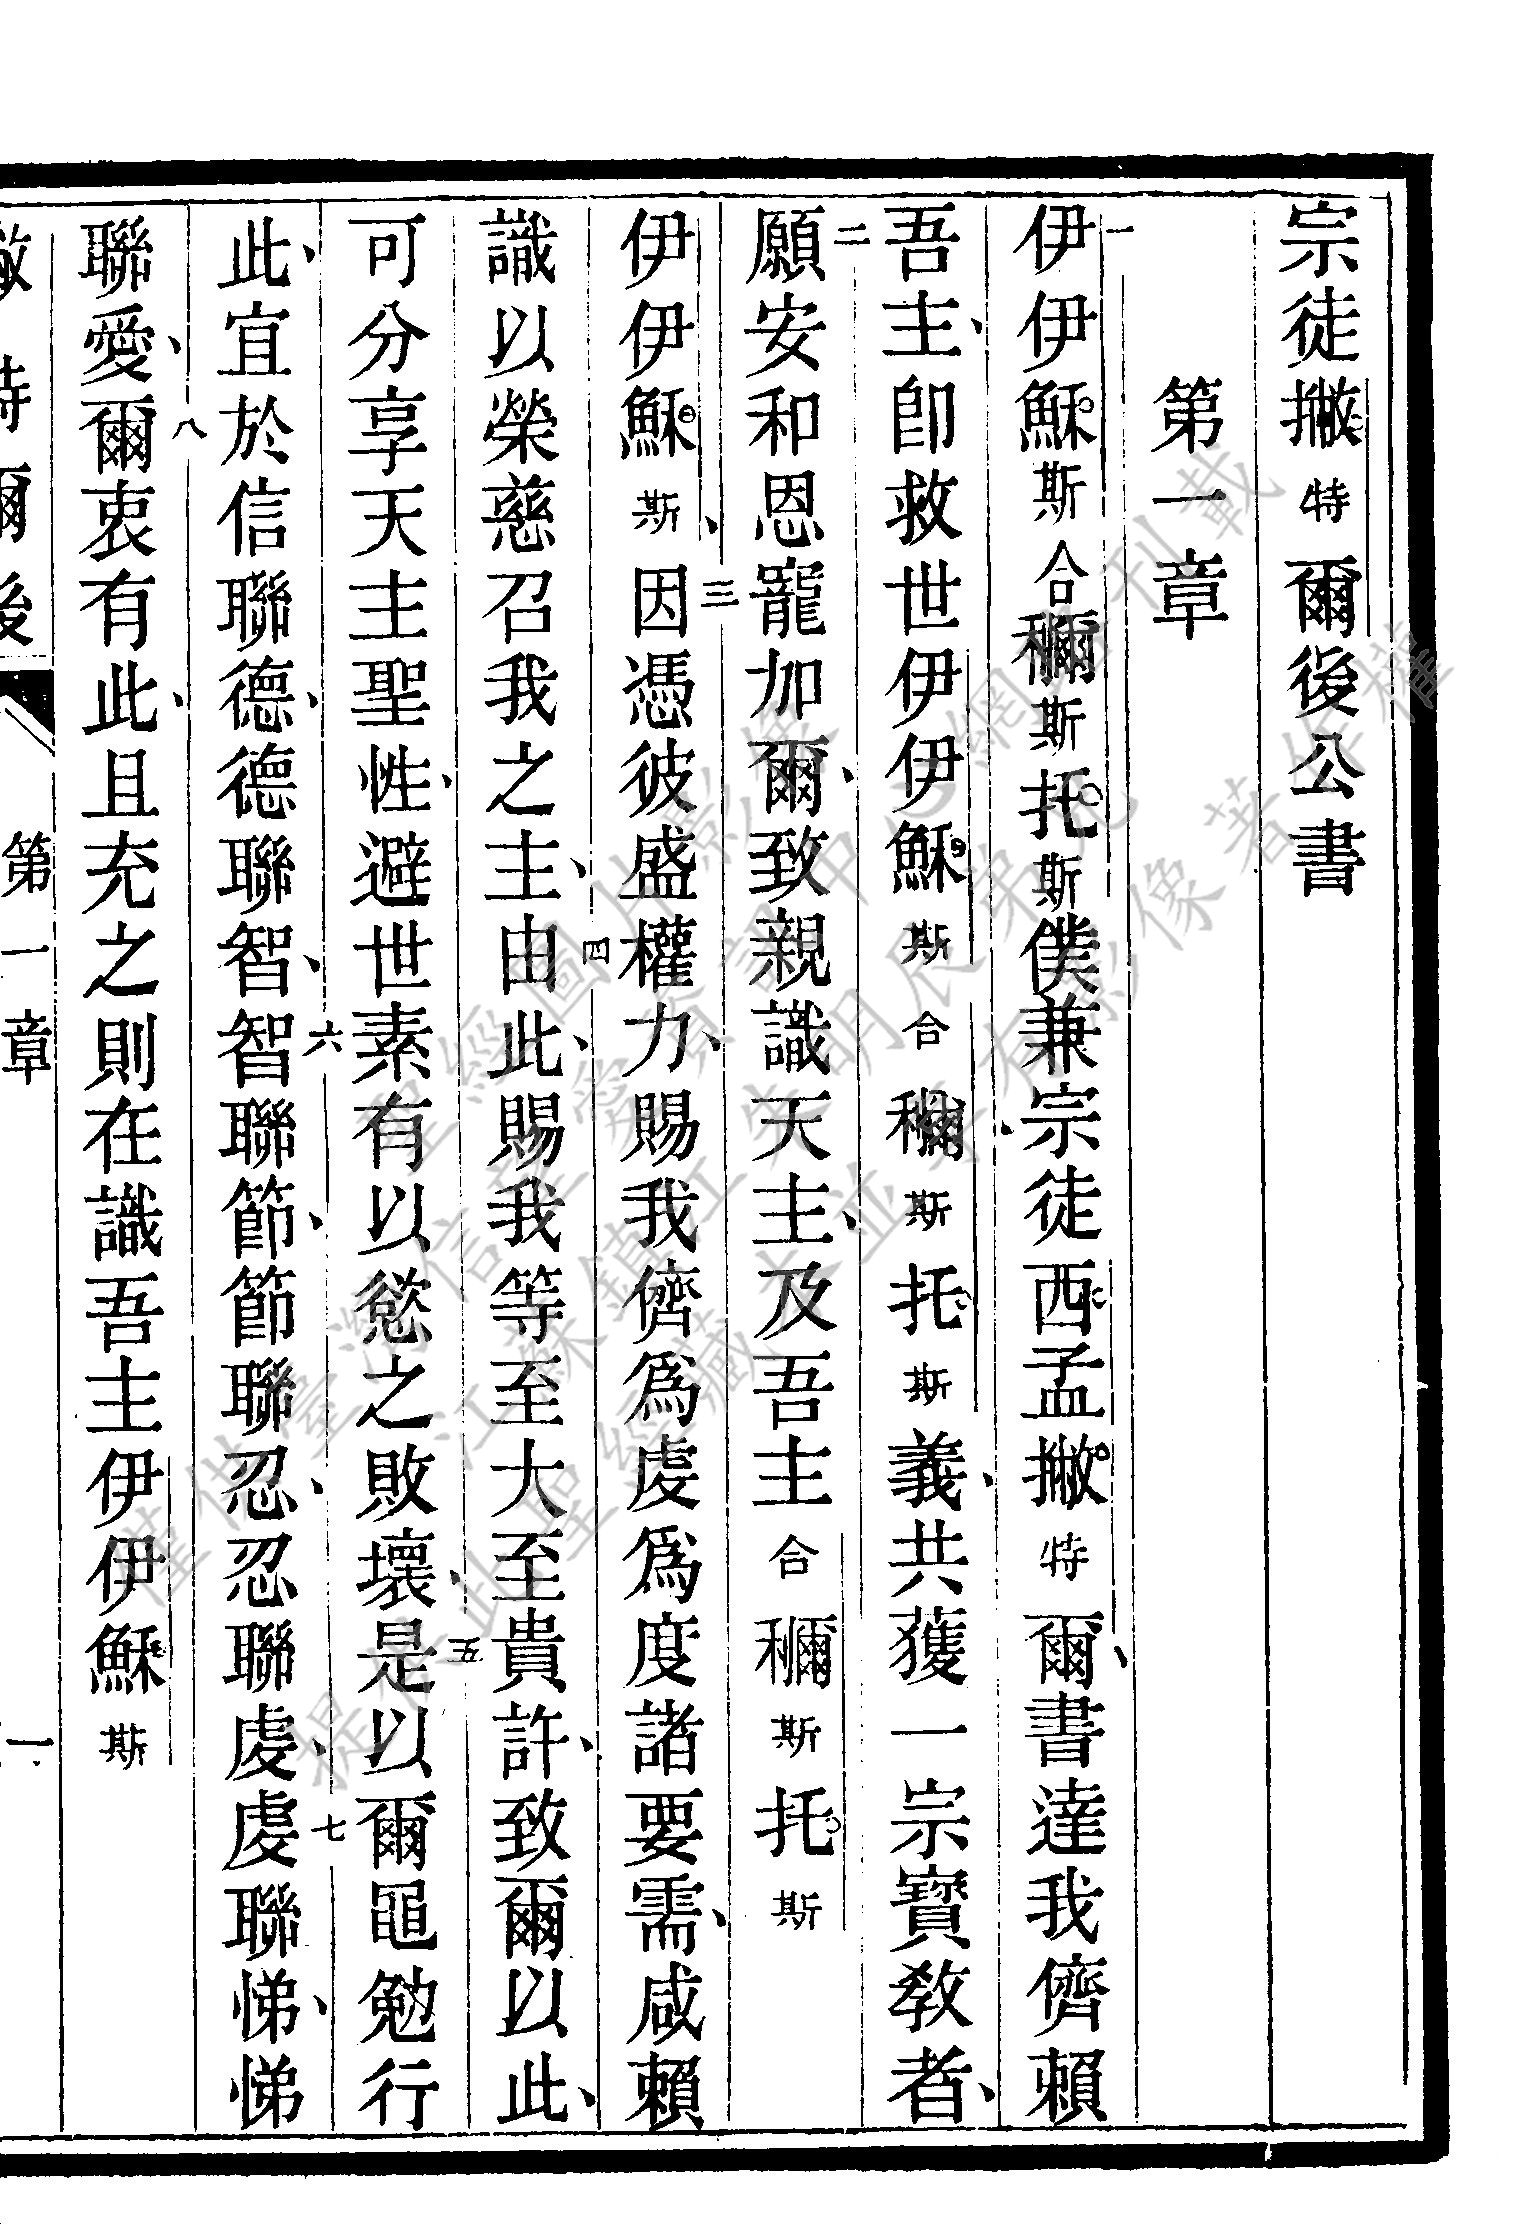 宗徒撇特爾後公書
第一章
一伊伊穌斯合穪斯托斯僕兼宗徒西孟撇特爾、書達我儕賴
吾主、即救世伊伊穌斯合穪斯托斯義、共獲一宗寶教者、
二願安和恩寵加爾、致親識天主、及吾主合穪斯托斯
伊伊穌斯、三因憑彼盛權力、賜我儕爲虔爲度諸要需、咸賴
識以榮慈召我之主、四由此、賜我等至大至貴許、致爾以此、
可分享天主聖性、避世素有以慾之敗壞、五是以爾黽勉行
此、宜於信聯德、德聯智、六智聯節、節聯忍、忍聯虔、七虔聯悌、悌
聯愛、八爾衷有此、且充之則在識吾主伊伊穌斯
特爾後 第一章 一